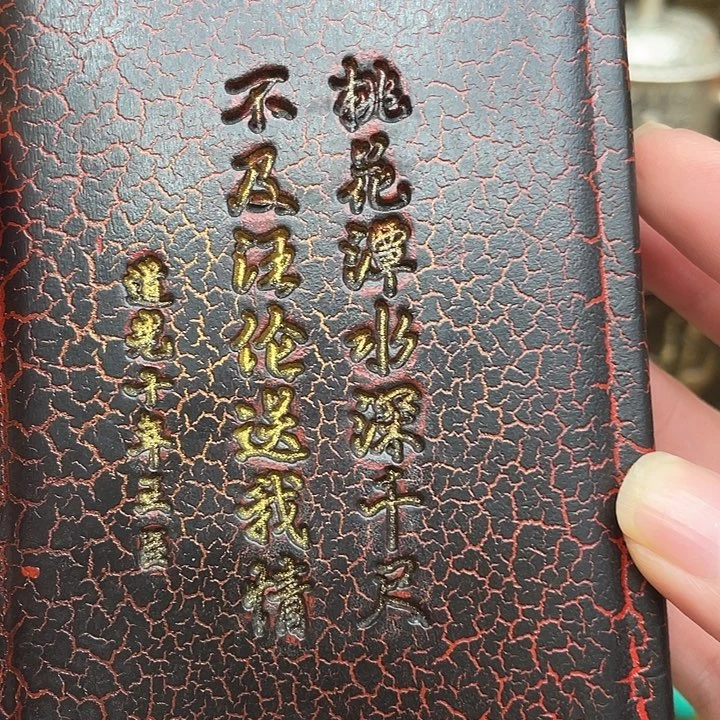 桃花潭水深千尺
不及汪伦送我情
道光十年三